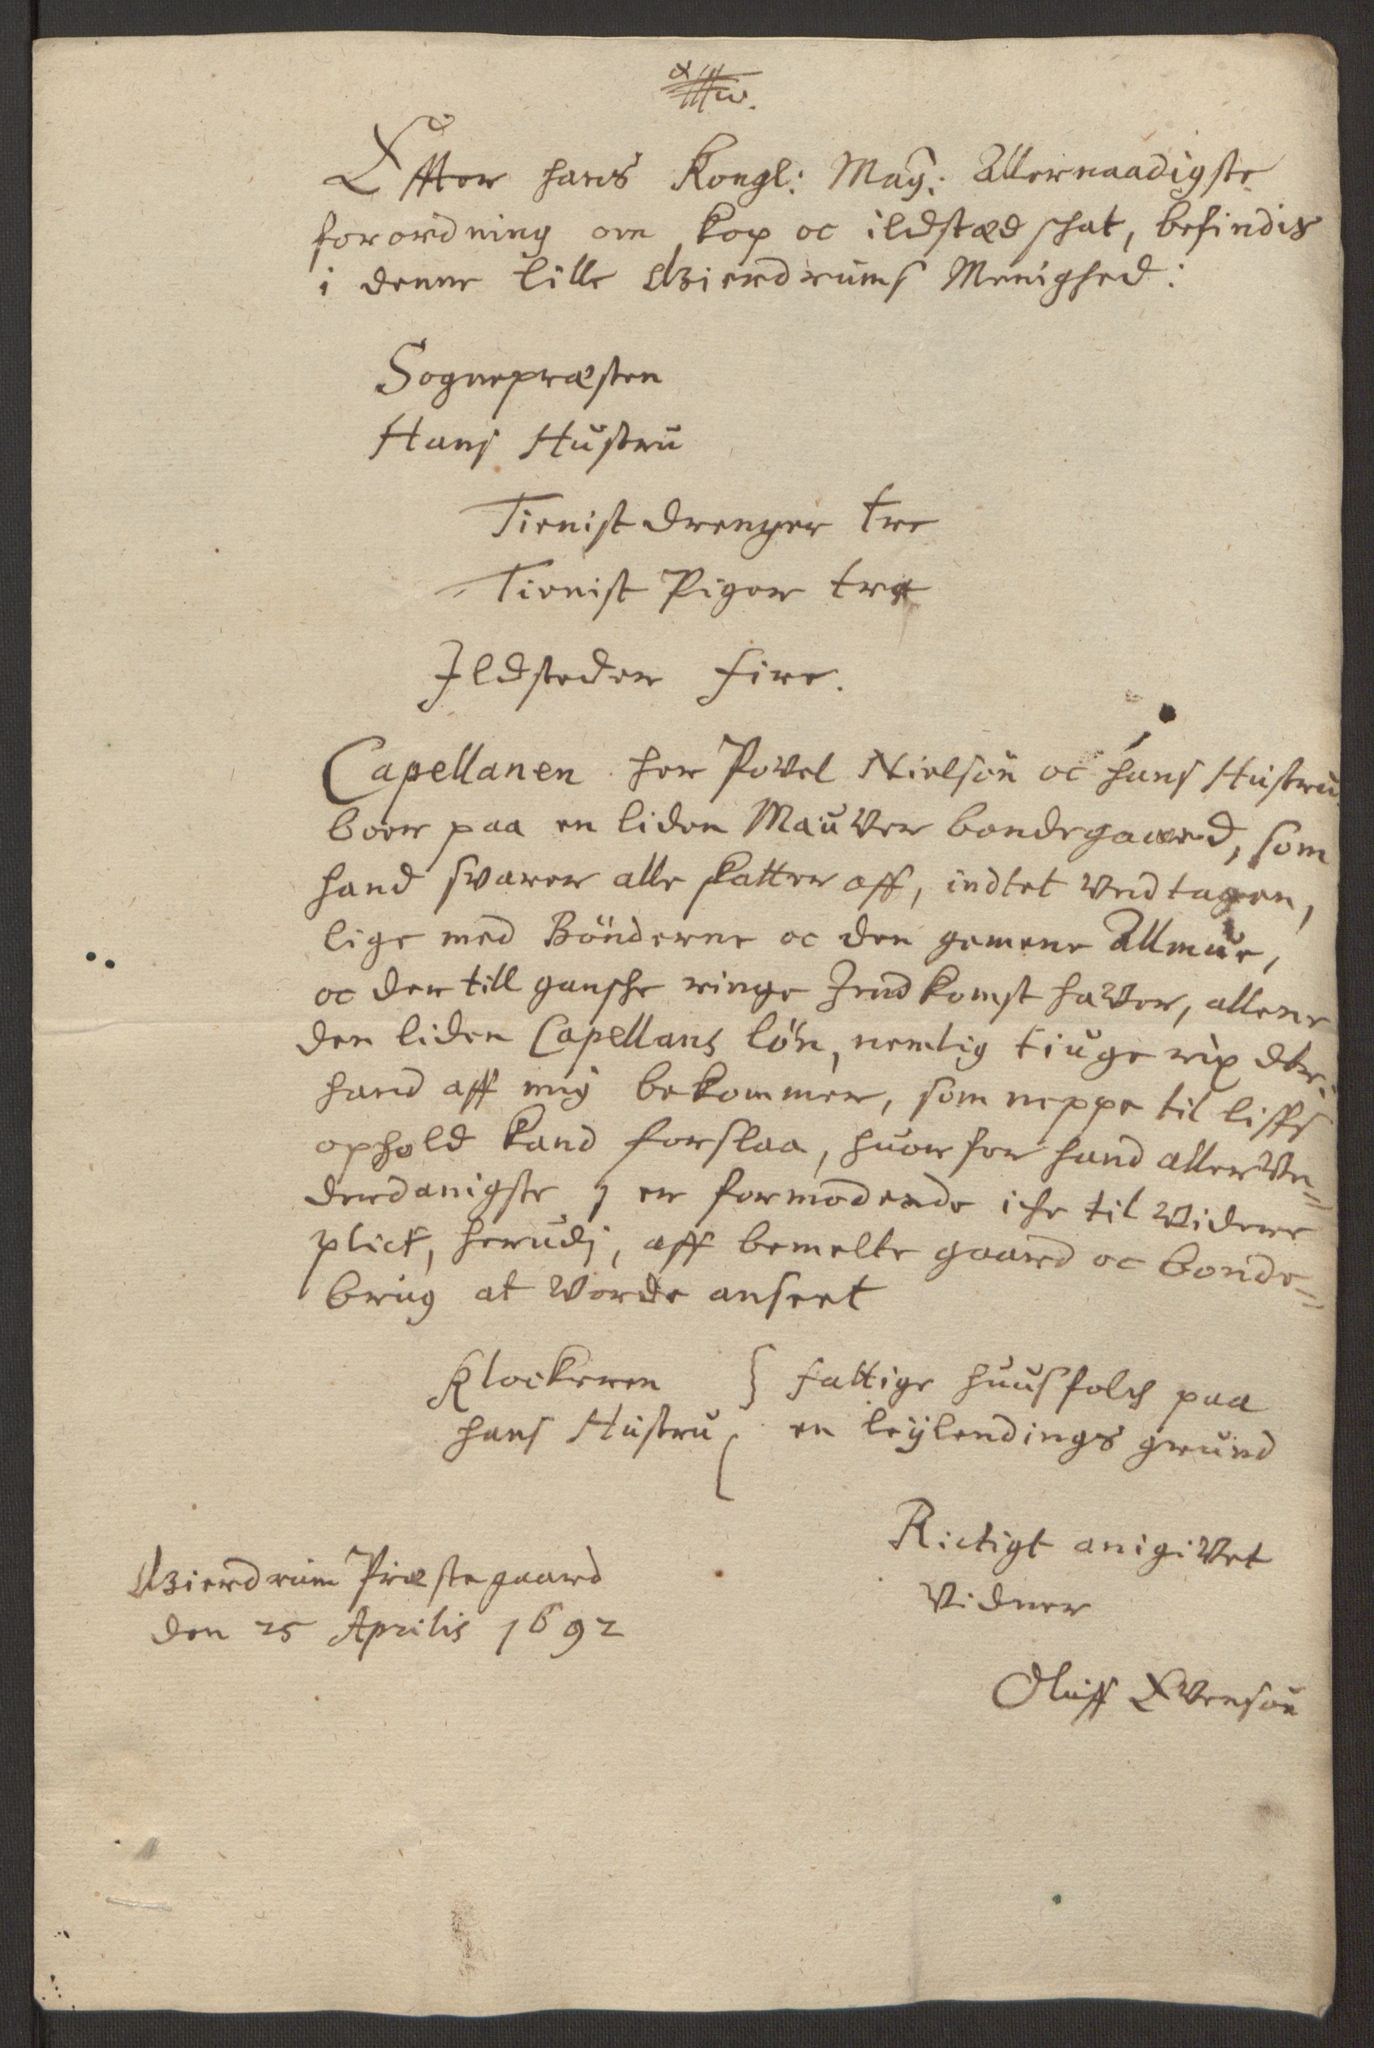 Effter hans Kongl: May: Allernaadigste
forordning om kop oc ildstæd schat, befindis
i denne lille Gierdrums Menighed:
Sognepræsten
Hans Hustru
Tienist drenger tre
Tienist Piger tre
Ildsteder fire.
Capellanen her Povel Nielsön oc hans Hustru
boer paa en liden Mauver bondegaard, som
hand svarer alle skatter aff, indtet undtagen,
lige med Bönderne oc den gemene Allmue,
oc der till gansche ringe Indkomst haver, allene
den liden Capellans lön, nemlig tiuge rix dlr:
hand aff mig bekommer, som neppe til liffs
ophold kand forslaa, huorfor hand allerun=
derdanigste er formodende iche til videre
plict, herudj, aff bemelte gaard oc bonde=
brug at vorde anseet
Klockeren fattige huusfolch paa
hans Hustru en leylendings grund
Rictigt angivet
vidner
Gierdrum Præstegaard
den 25 Aprilis 1692
Oluff Evensön